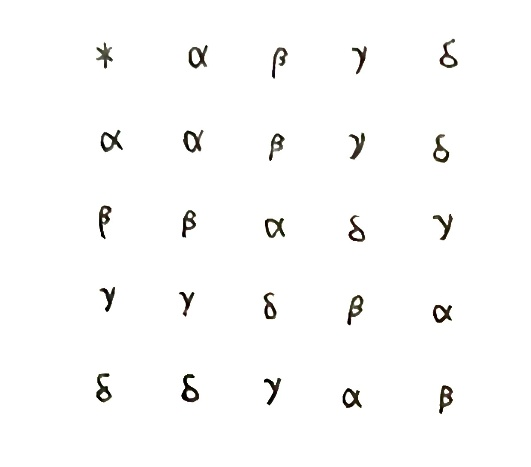 * α β γ δ
α α β γ δ
β β α δ γ
γ γ δ β α
δ δ γ α β